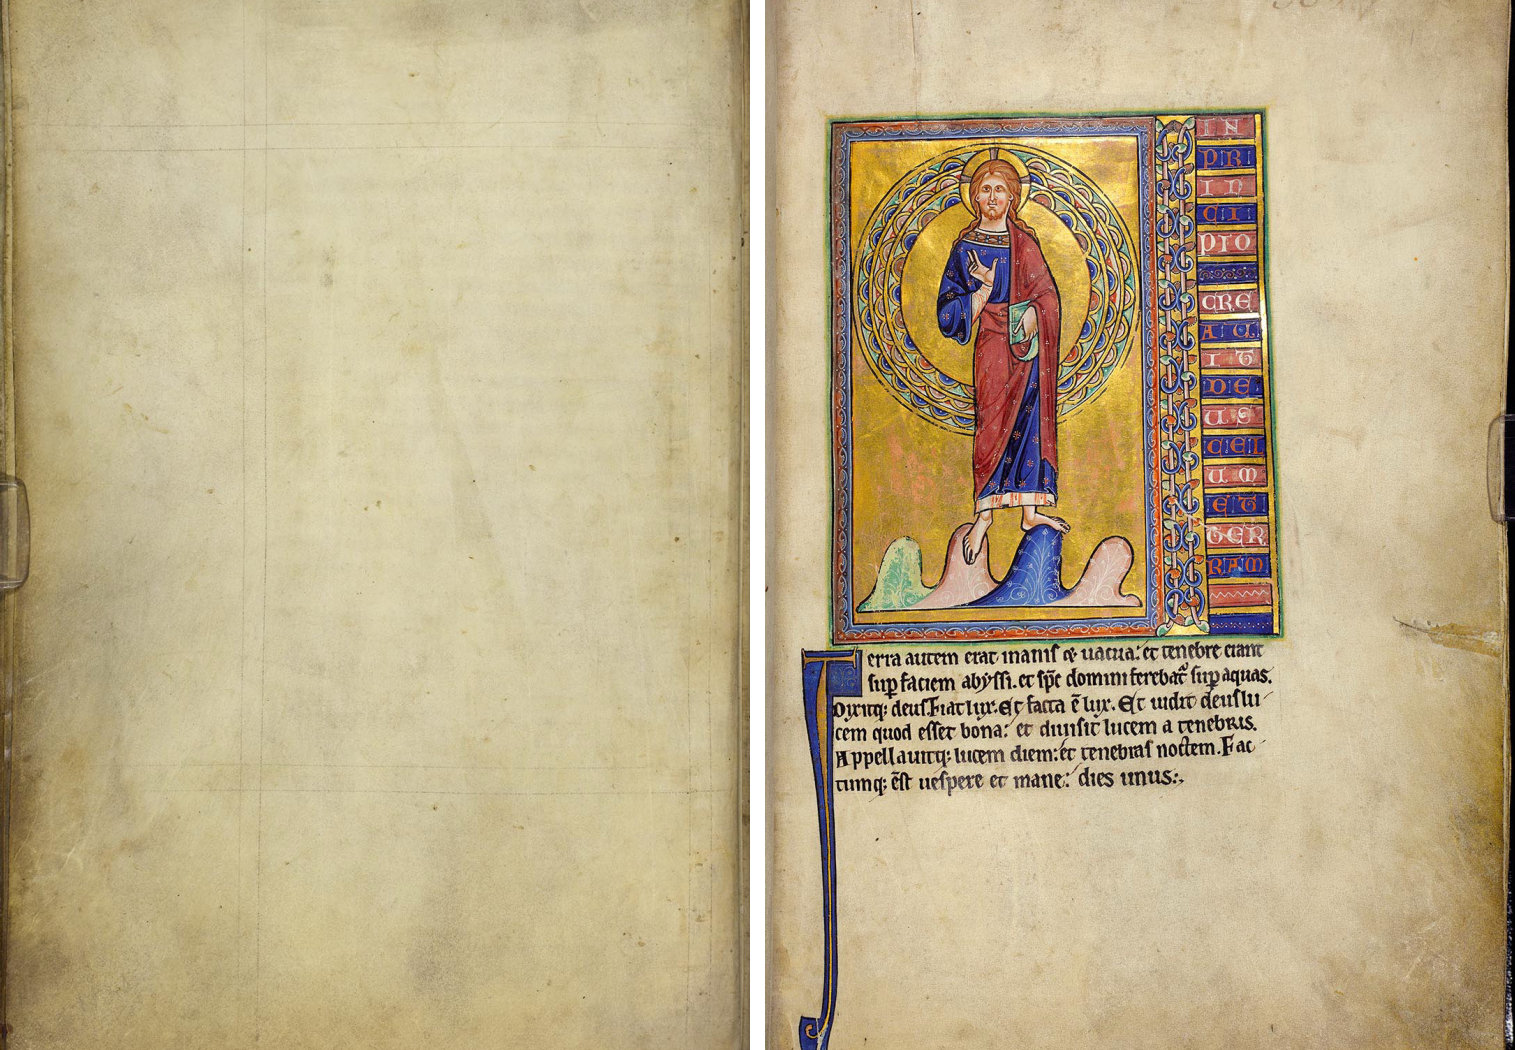 IN
PR
IN
CI
PIO
CRE
AU
IT
DE
US
CEL
UM
ET
TER
RAM
Terra autem erat inanis & uacua: et tenebre erant
sup̱ faciem abyssi. et sp̄c domini ferebat᷑ sup̱ aquas.
Dixitq; deus. Fiat lux. Et facta ē lux. Et uidit deus lu
cem quod esset bona: et diuisit lucem a tenebris.
Appellauitq; lucem diem: et tenebras noctem. Fac
tumq; ēst uespere et mane: dies unus:,